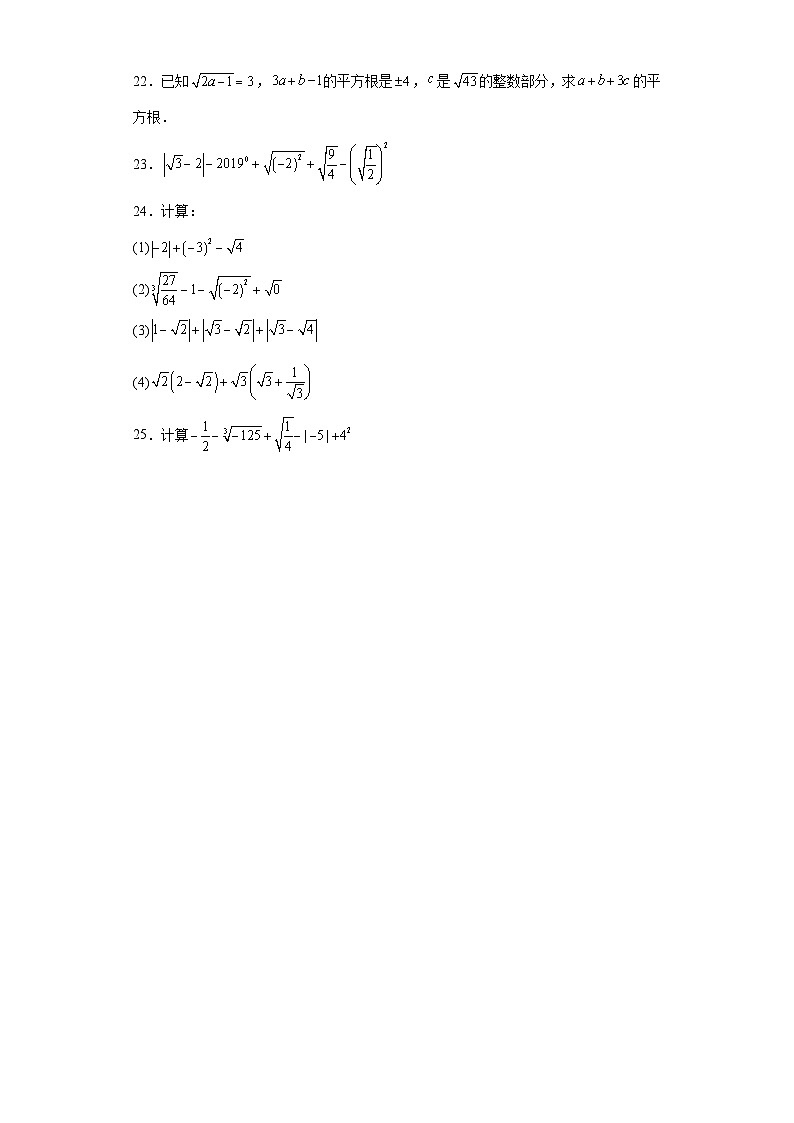 22．已知$\sqrt{2a-1}=3$，$3a+b-1$的平方根是$\pm4$，$c$是$\sqrt{43}$的整数部分，求$a+b+3c$的平
方根．
23．$\left|\sqrt{3}-2\right|-2019^{0}+\sqrt{(-2)^{2}}+\sqrt{\frac{9}{4}}-\left(\sqrt{\frac{1}{2}}\right)^{2}$
24．计算：
(1)$|-2|+(-3)^{2}-\sqrt{4}$
(2)$\sqrt[3]{\frac{27}{64}}-1-\sqrt{(-2)^{2}}+\sqrt{0}$
(3)$\left|1-\sqrt{2}\right|+\left|\sqrt{3}-\sqrt{2}\right|+\left|\sqrt{3}-\sqrt{4}\right|$
(4)$\sqrt{2}\left(2-\sqrt{2}\right)+\sqrt{3}\left(\sqrt{3}+\frac{1}{\sqrt{3}}\right)$
25．计算$-\frac{1}{2}-\sqrt[3]{-125}+\sqrt{\frac{1}{4}}-|-5|+4^{2}$